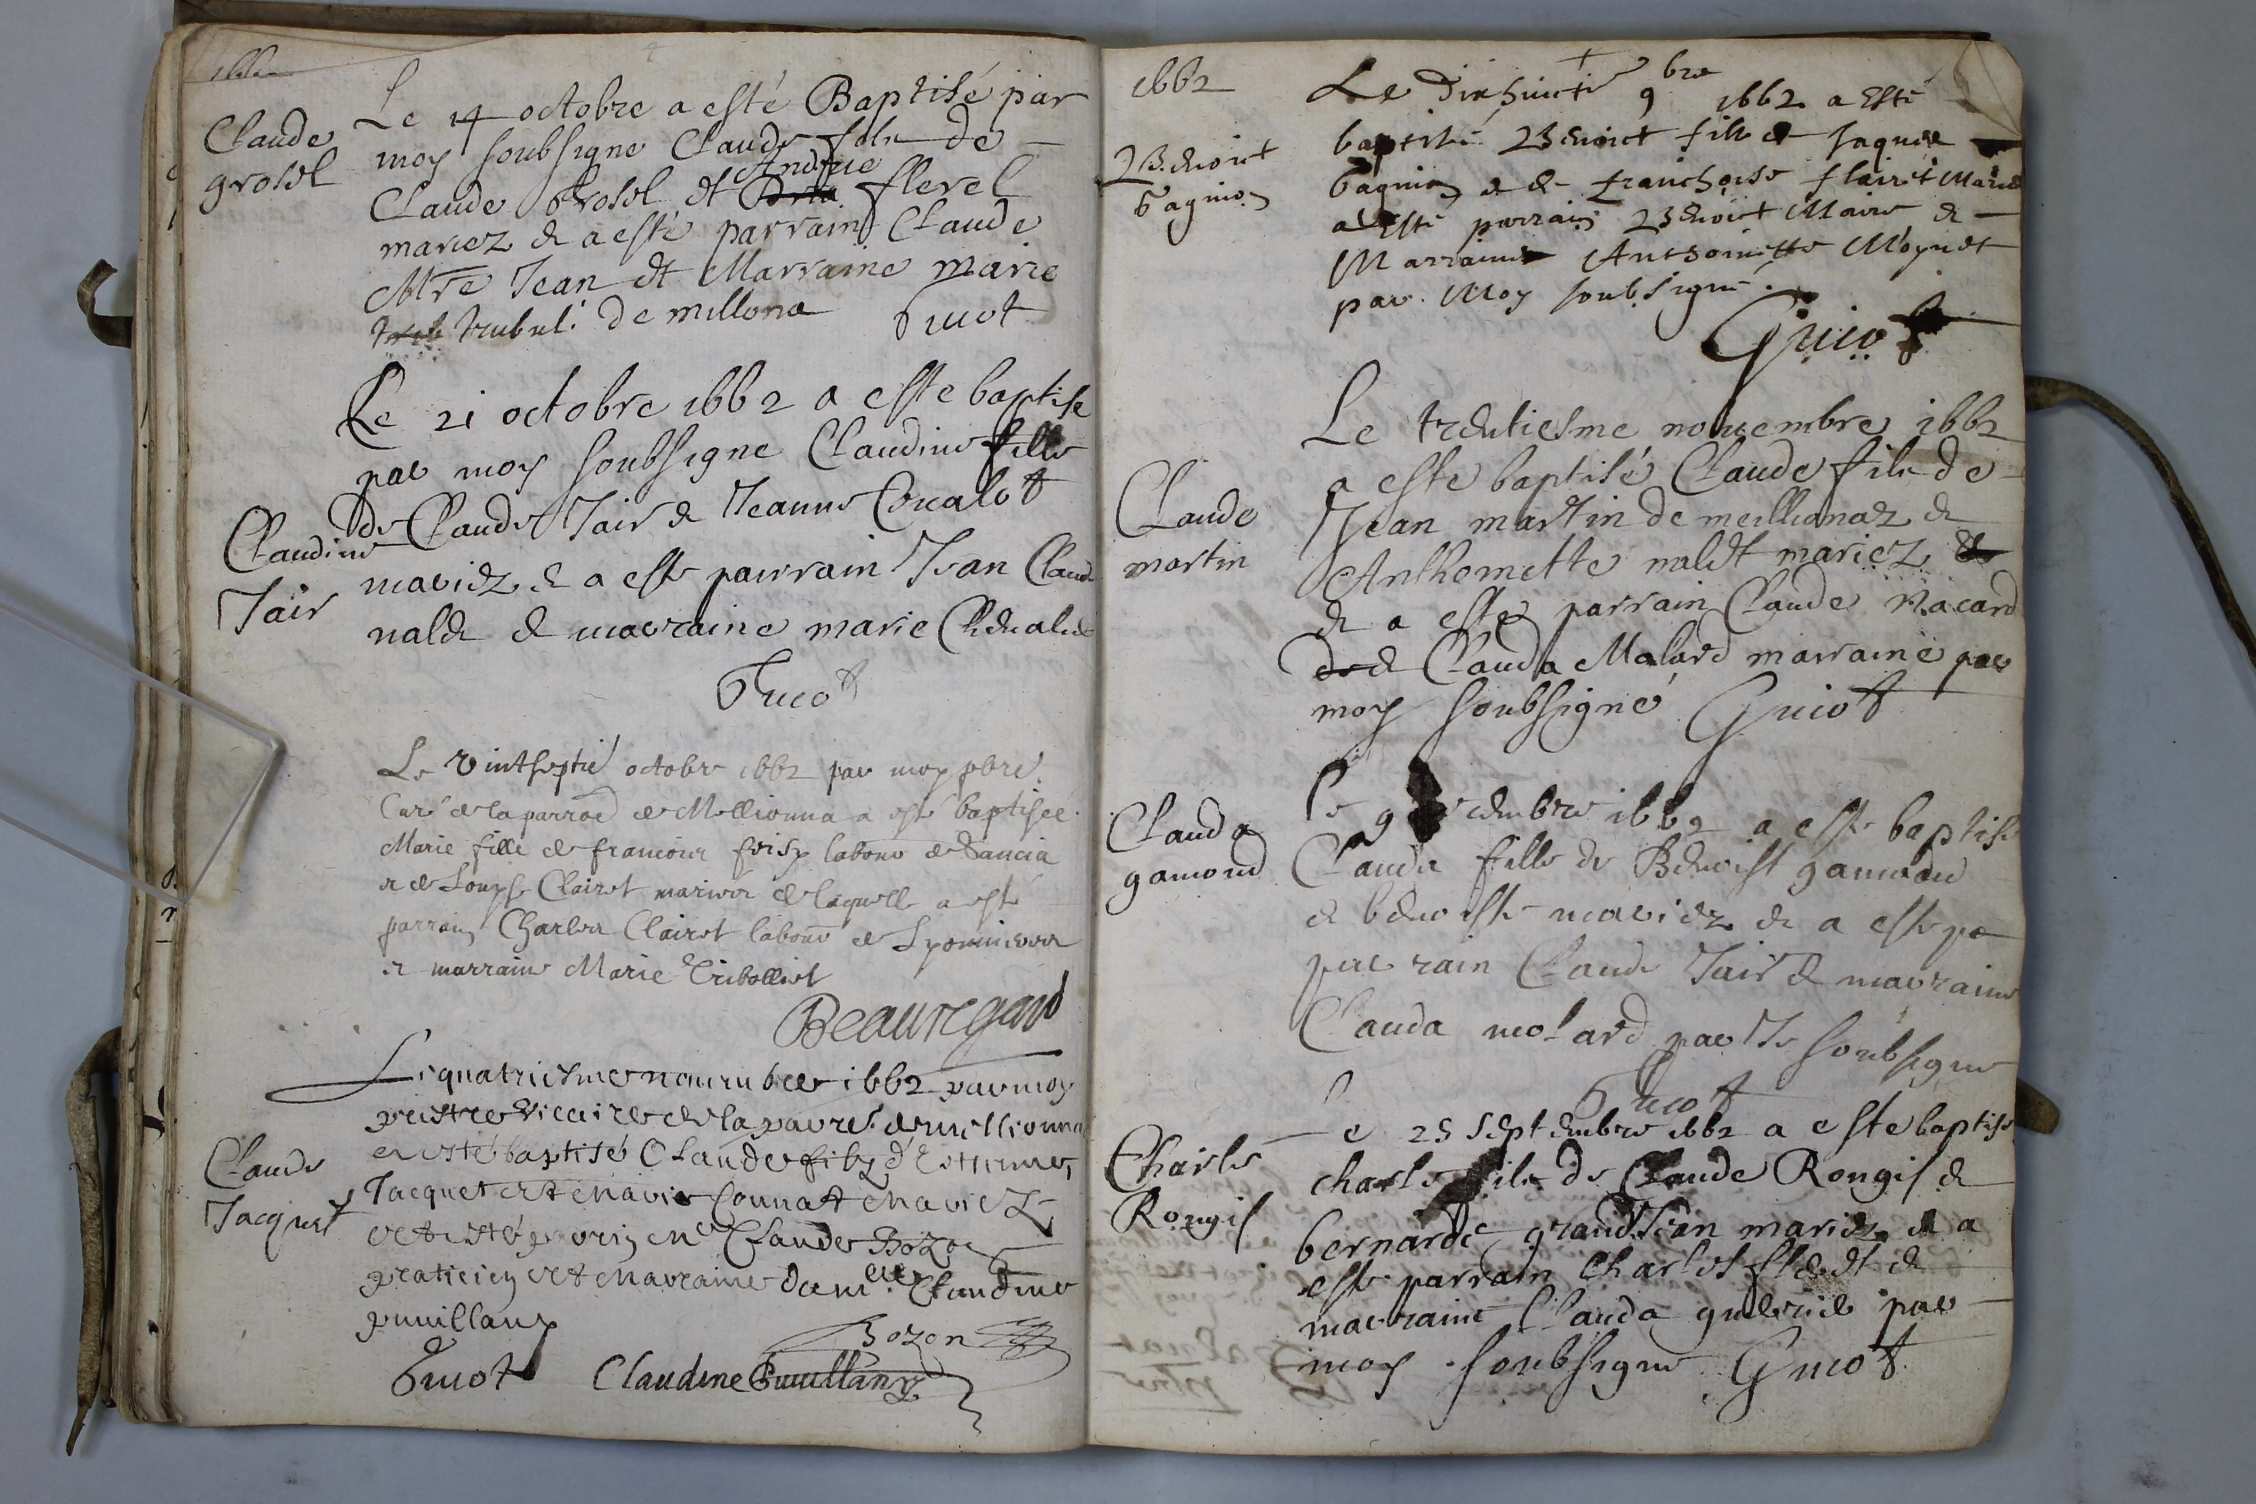 1662
Claude
grosel
Le 14 octobre a esté Baptisé par
moy soubsigne Claude filz de
Claude Grosel et Andree flerel
mariez & a esté parrain Claude
Mre Jean et Marraine marie
de millona Guiot
Le 21 octobre 1662 a este baptise
par moy soubsigne Claudine fille
de Claude Jair & Jeanne
Claudine
Jair
mariez & a este parrain Jean Claude
& marraine marie
Guiot
Le vintseptié octobre 1662 par moy pbre
Curé de la parroe de Mellionna a esté baptiseé
Marie fille de francois labour de
et de Louyse Clairet mariés de laquelle a esté
parrain Charles Clairet labour de
et marraine Marie Tribolliet
Beauregard
Le quatriesme novembre 1662 par moy
prestre Vicaire de la parre de millionna
a esté baptisé Claude filz d'Estienne
Claude
Jacquet
Jacquet et Marie Connat mariez
et esté parrin Mre Claude Bozon
praticien et Marraine dam.elle Claudine
puuillanz
Bozon
Guiot Claudine
1662
Le dixhuictie 9bre 1662 a Esté
baptisé Benoict fill de Jaques
Benoict
Gagnion
Gagnion & de franchoise flairet Mariez
a Esté parrain Benoict Maire &
Marraine Anthoinette Moynet
par Moy soubsigné.
Guiot
Le trentiesme novembre 1662
a este baptisé Claude filz de
Claude
martin
Jean martin de meillionaz &
Anthoinette malet mariez
& a este parrain Claude Macard
& Clauda Molard marraine par
moy soubsigné Guiot
Le 9 1662 a este baptise
Clauda
gamond
Clauda fille de Benoist gamond
& benoiste mariez & a este pa
par rain Claude Jair & marraine
Clauda molard par Je soubsigne
Guiot
Le 25 septembre 1662 a este baptise
Charle
Rongis
charle filz de Claude Rongis &
bernarde grand Jean mariez & a
este parrain Charles &
marraine Clauda par
moy soubsigne Guiot